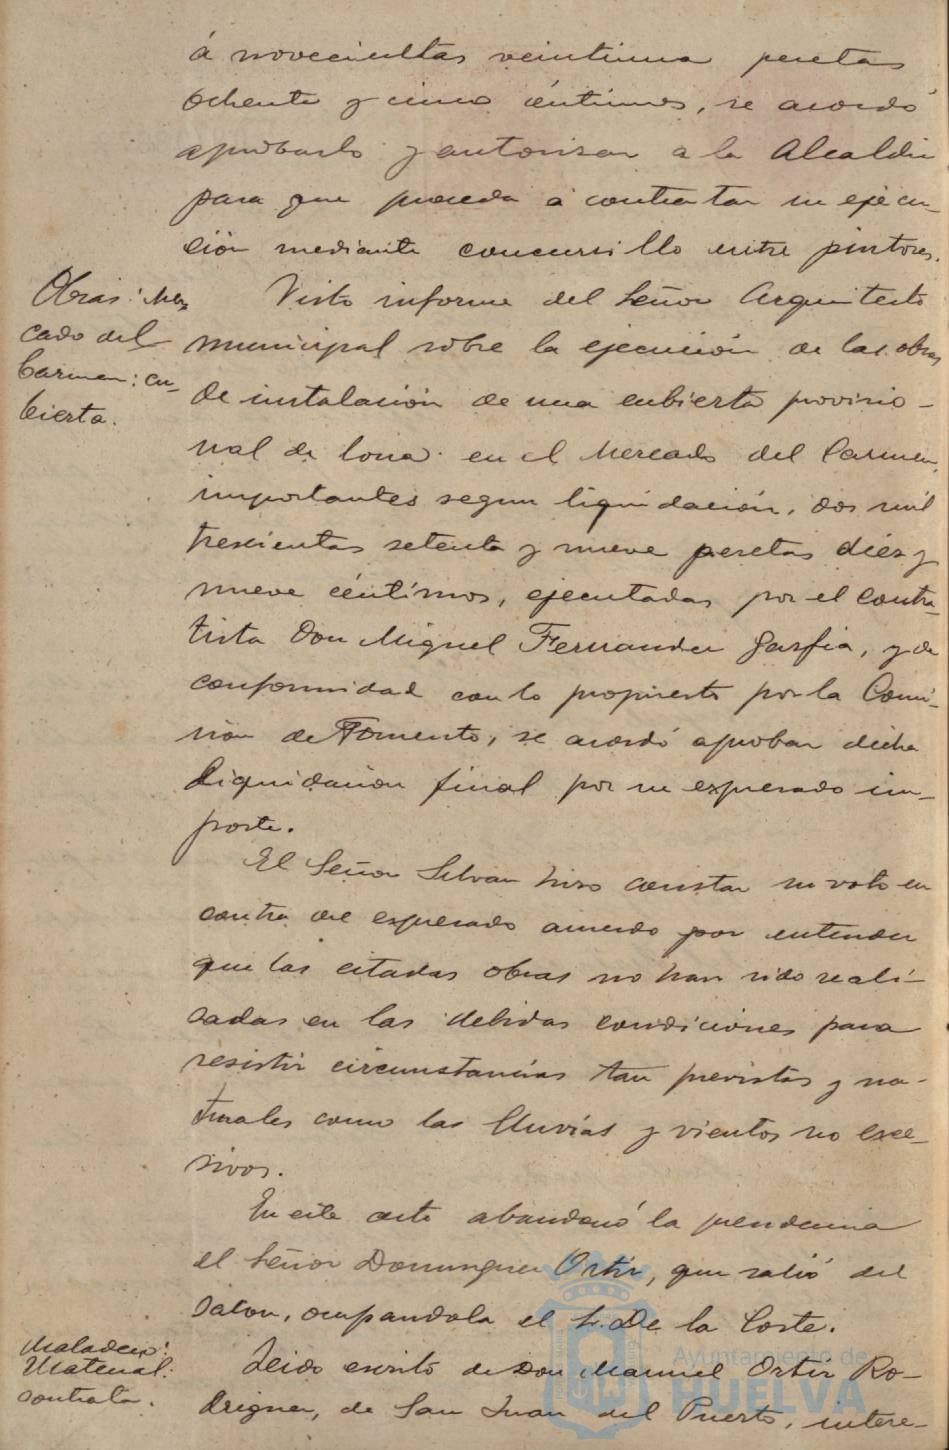 á novecientas veintiuna pesetas
ochenta y cinco céntimos, se acordó
aprobarlo y autorizar a la Alcaldia
para que proceda á contratar su ejecu-
ción mediante concursillo entre pintores.
Obras: Mer-
cado del
Carmen: cu-
bierta.
Visto informe del Señor Arquitecto
municipal sobre la ejecución de las obras
de instalación de una cubierta provisio-
nal de lona en el Mercado del Carmen,
importantes segun liquidación, dos mil
trescientas setenta y nueve pesetas diez y
nueve céntimos, ejecutadas por el contra-
tista Don Miguel Fernandez Garfia, y de
conformidad con lo propuesto por la Comi-
sión de Fomento, se acordó aprobar dicha
liquidación final por su expresado im-
porte.
El Señor Silvan hizo constar su voto en
contra del expresado acuerdo por entender
que las citadas obras no han sido reali-
zadas en las debidas condiciones para
resistir circunstancias tan previstas y na-
turales como las lluvias y vientos no exce-
sivos.
En este acto abandonó la presidencia
el Señor Dominguez Ortiz, que salió del
salon, ocupandola el S. De la Corte.
Matadero:
Material:
contrata.
Leido escrito de Don Manuel Ortiz Ro-
driguez, de San Juan del Puerto, intere-
Ayuntamiento de
HUELVA